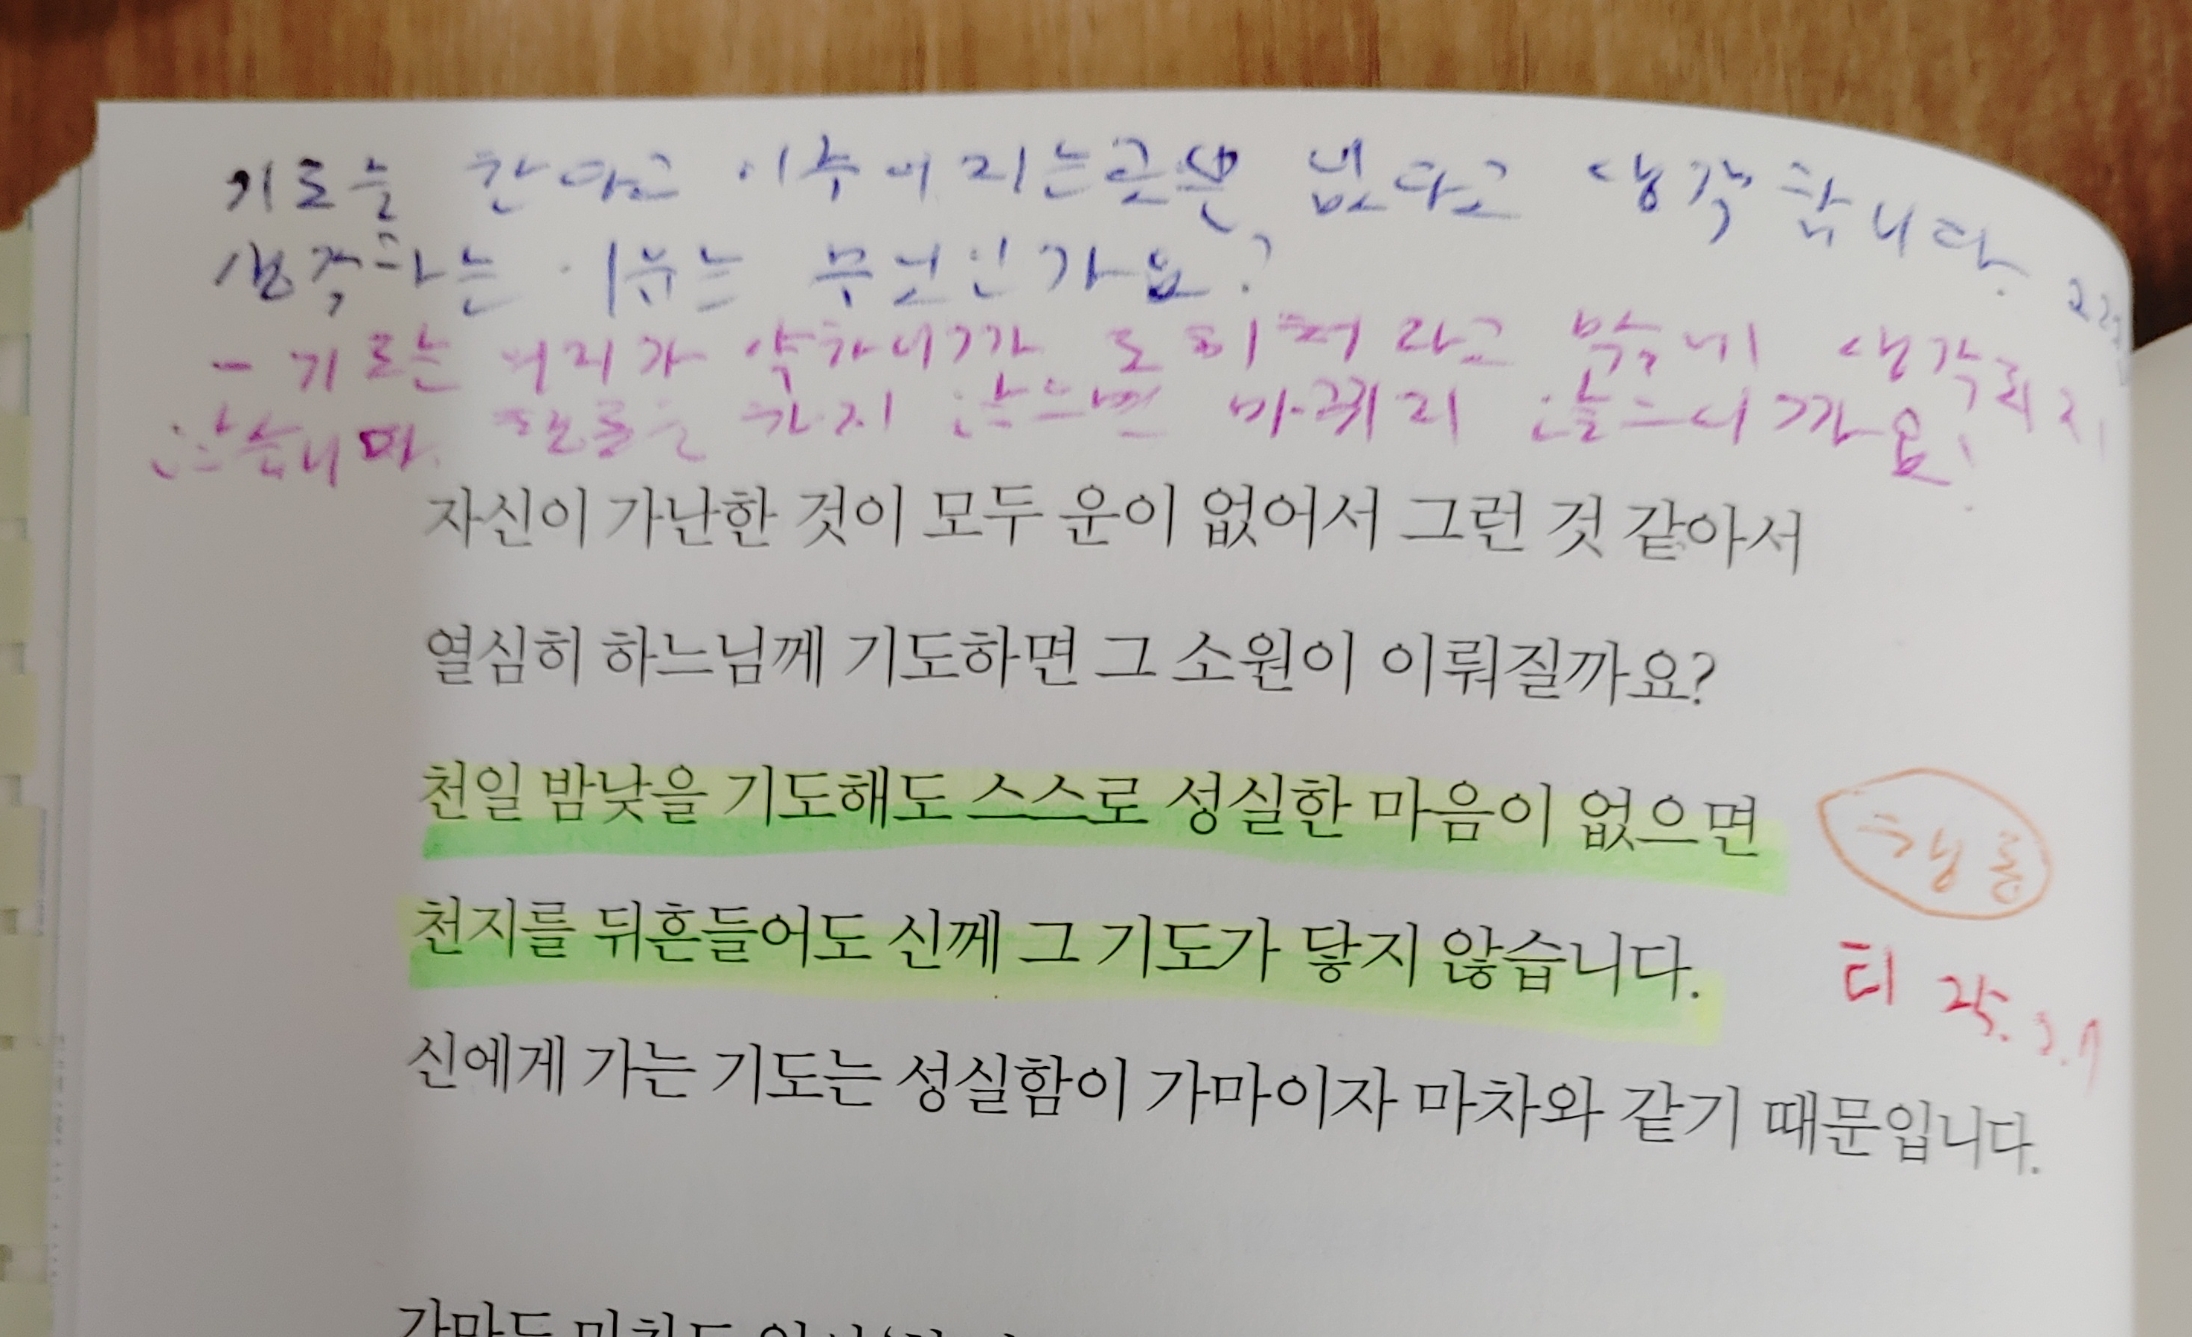 기도를 한다고 이루어지는 없다고 생각합니다.
생각하는 이유는 무엇인가요?
- 기도는 약하니까 생각되지
않습니다. 가지 않으면 바뀌지 않으니까요.
자신이 가난한 것이 모두 운이 없어서 그런 것 같아서
열심히 하느님께 기도하면 그 소원이 이뤄질까요?
천일 밤낮을 기도해도 스스로 성실한 마음이 없으면
행동
천지를 뒤흔들어도 신께 그 기도가 닿지 않습니다.
티 25.
신에게 가는 기도는 성실함이 가마이자 마차와 같기 때문입니다.